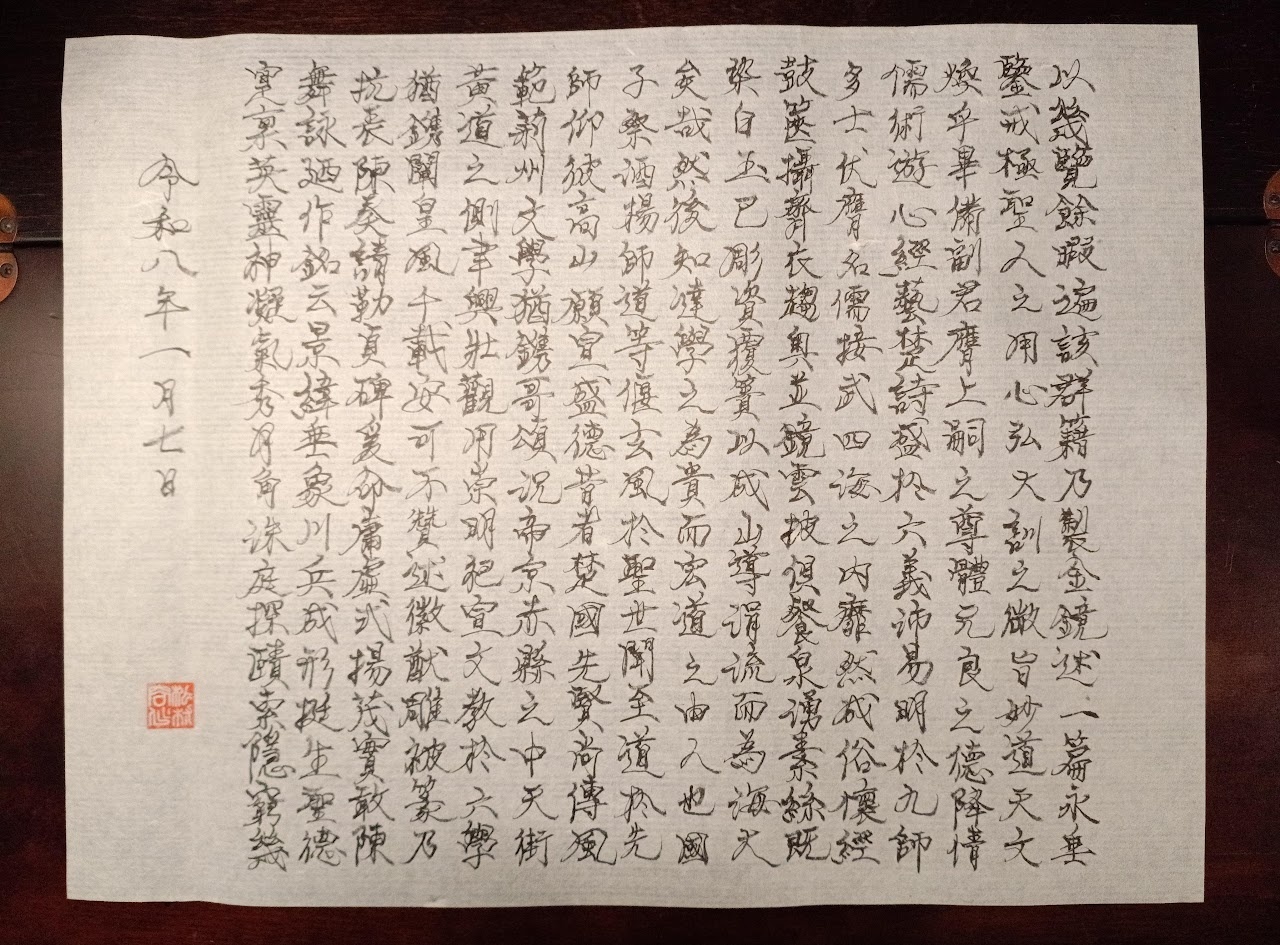 以幾覽餘暇遍該群籍乃製金鏡述一篇永垂
鑒戒極聖人之用心弘大訓之微旨妙道天文
煥乎畢備副君膺上嗣之尊體元良之德降情
儒術遊心經藝楚詩盛於六義沛易明於九師
多士伏膺名儒接武四海之內靡然成俗懷經
鼓篋攝齊衣趨奧並鏡雲披俱餐泉湧素絲既
染白玉已彫資覆簣以成山導涓流而為海大
矣哉然後知達學之為貴而宏道之由人也國
子祭酒楊師道等偃玄風於聖世聞至道於先
師仰彼高山願宣盛德昔者楚國先賢尚傳風
範荊州文學猶鐫哥頌況帝京赤縣之中天街
黃道之側聿興壯觀用崇明祀宣文教於六學
猶鐫闡皇風千載安可不贊述徽猷雕被篆乃
抗表陳奏請勒貞碑爰命庸虛式揚茂實敢陳
舞詠廼作銘云景緯垂象川兵成形挺生聖德
寔稟英靈神凝氣秀月角珠庭探賾索隱窮幾
令和八年一月七日